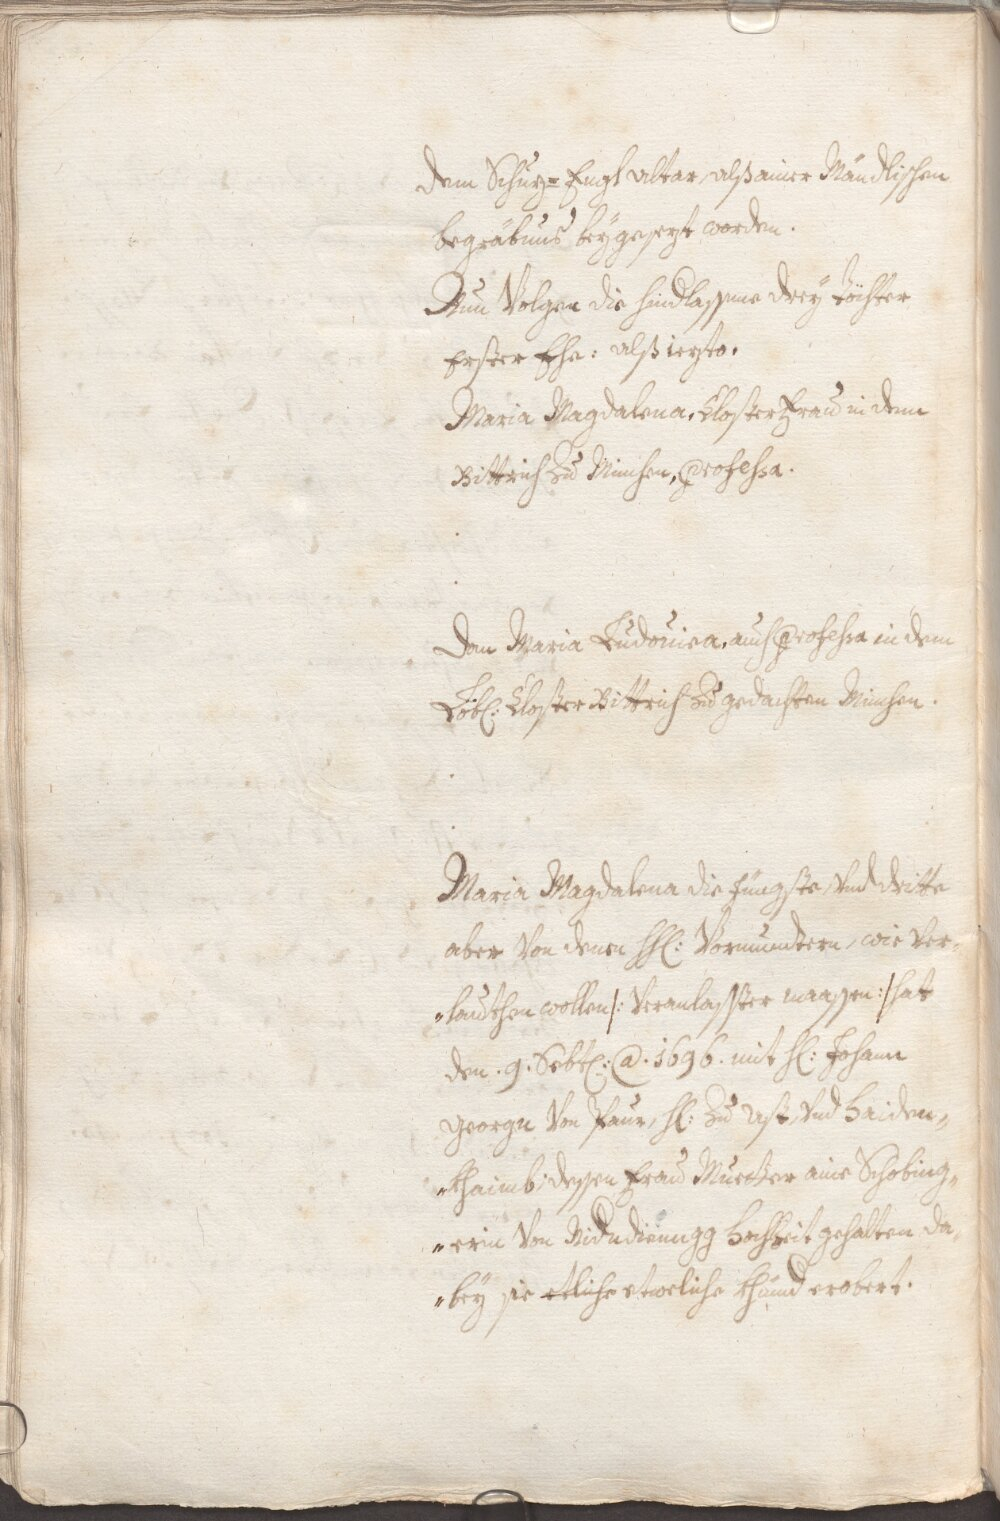 dem Schuz= Engl Altar, alß ainer Mändlischen
begräbnus beÿgesezt worden.
Nun Volgen die hindlassene dreÿ töchter
Erster Ehe: alß iezto.
Maria Magdalena, Closter Frau in dem
Bittrich zu Münchn, Professa.
Dan Maria Ludouica, auch Professa in dem
Löbl: Closter Bittrich zu gedachten München.
Maria Magdalena die Jüngste, Vnd dritte
aber Von denen HH: Vormundtern, wie ver„
„lauthen wollen /: Veranlasster maassen :/ hat
den .9. Sebt: A. 1696. mit H: Johann
Georgn Von Paur, H: zu Ast, Vnd Haiden„
„khaimb, dessen Frau Muetter aine Schobing„
„erin Von Hochzeit gehalten da„
„beÿ sie etliche etweliche Khünd erobert.